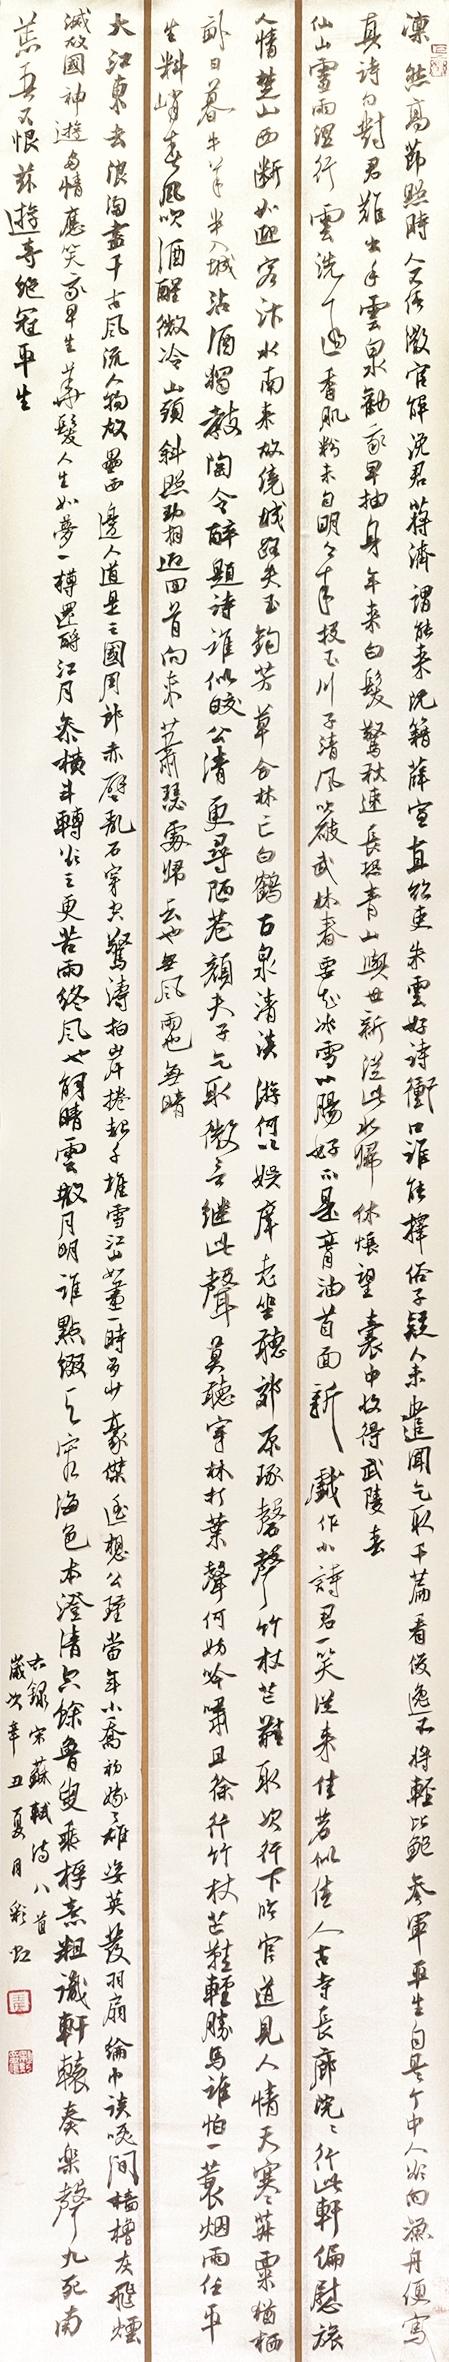 凛然高節照時人不信微官解浼君蒋濟謂能来阮籍薛宣直欲吏朱雲好詩衝口誰能擇俗子疑人未遣聞乞取千篇看俊逸不將輕比鮑參軍平生自是个中人欲向漁舟便寫
真詩句對君難出手雲泉勸我早抽身年来白髮驚秋速長恐青山與世新從此北歸休悵望囊中收得武陵春
仙山靈雨濕行雲洗遍香肌粉未勻明月来投玉川子清風吹破武林春要知冰雪心腸好不是膏油首面新戲作小詩君一笑從来佳茗似佳人古寺長廊院々行此軒偏慰旅
人情楚山西断如迎客汴水南来故繞城路失玉鈎芳草合林亡白鶴古泉清淡游何以娛庠老坐聽郊原琢磬聲竹杖芒鞋取次行下臨官道見人情天寒菽粟猶栖
畝日暮牛羊半入城沽酒獨教陶令醉題詩誰似皎公清更尋陋巷顏夫子乞取微言継此聲莫聽穿林打葉聲何妨吟嘯且徐行竹杖芒鞋輕勝馬誰怕一蓑烟雨任平
生料峭春風吹酒醒微冷山頭斜照却相迎回首向来萧瑟處歸去也無風雨也無晴
大江東去浪淘盡千古風流人物故壘西邊人道是三國周郎赤壁亂石穿空驚濤拍岸捲起千堆雪江山如畫一時多少豪傑遥想公瑾當年小喬初嫁了雄姿英發羽扇綸巾談笑間檣櫓灰飛煙
滅故國神遊多情應笑我早生華髮人生如夢一樽還酹江月參横斗轉欲三更苦雨終風也解晴雲散月明誰點綴天容海色本澄清空餘魯叟乘桴意粗識軒轅奏樂聲九死南
荒吾不恨兹遊奇絶冠平生
右錄宋蘇軾詩八首
歲次辛丑夏月彩虹